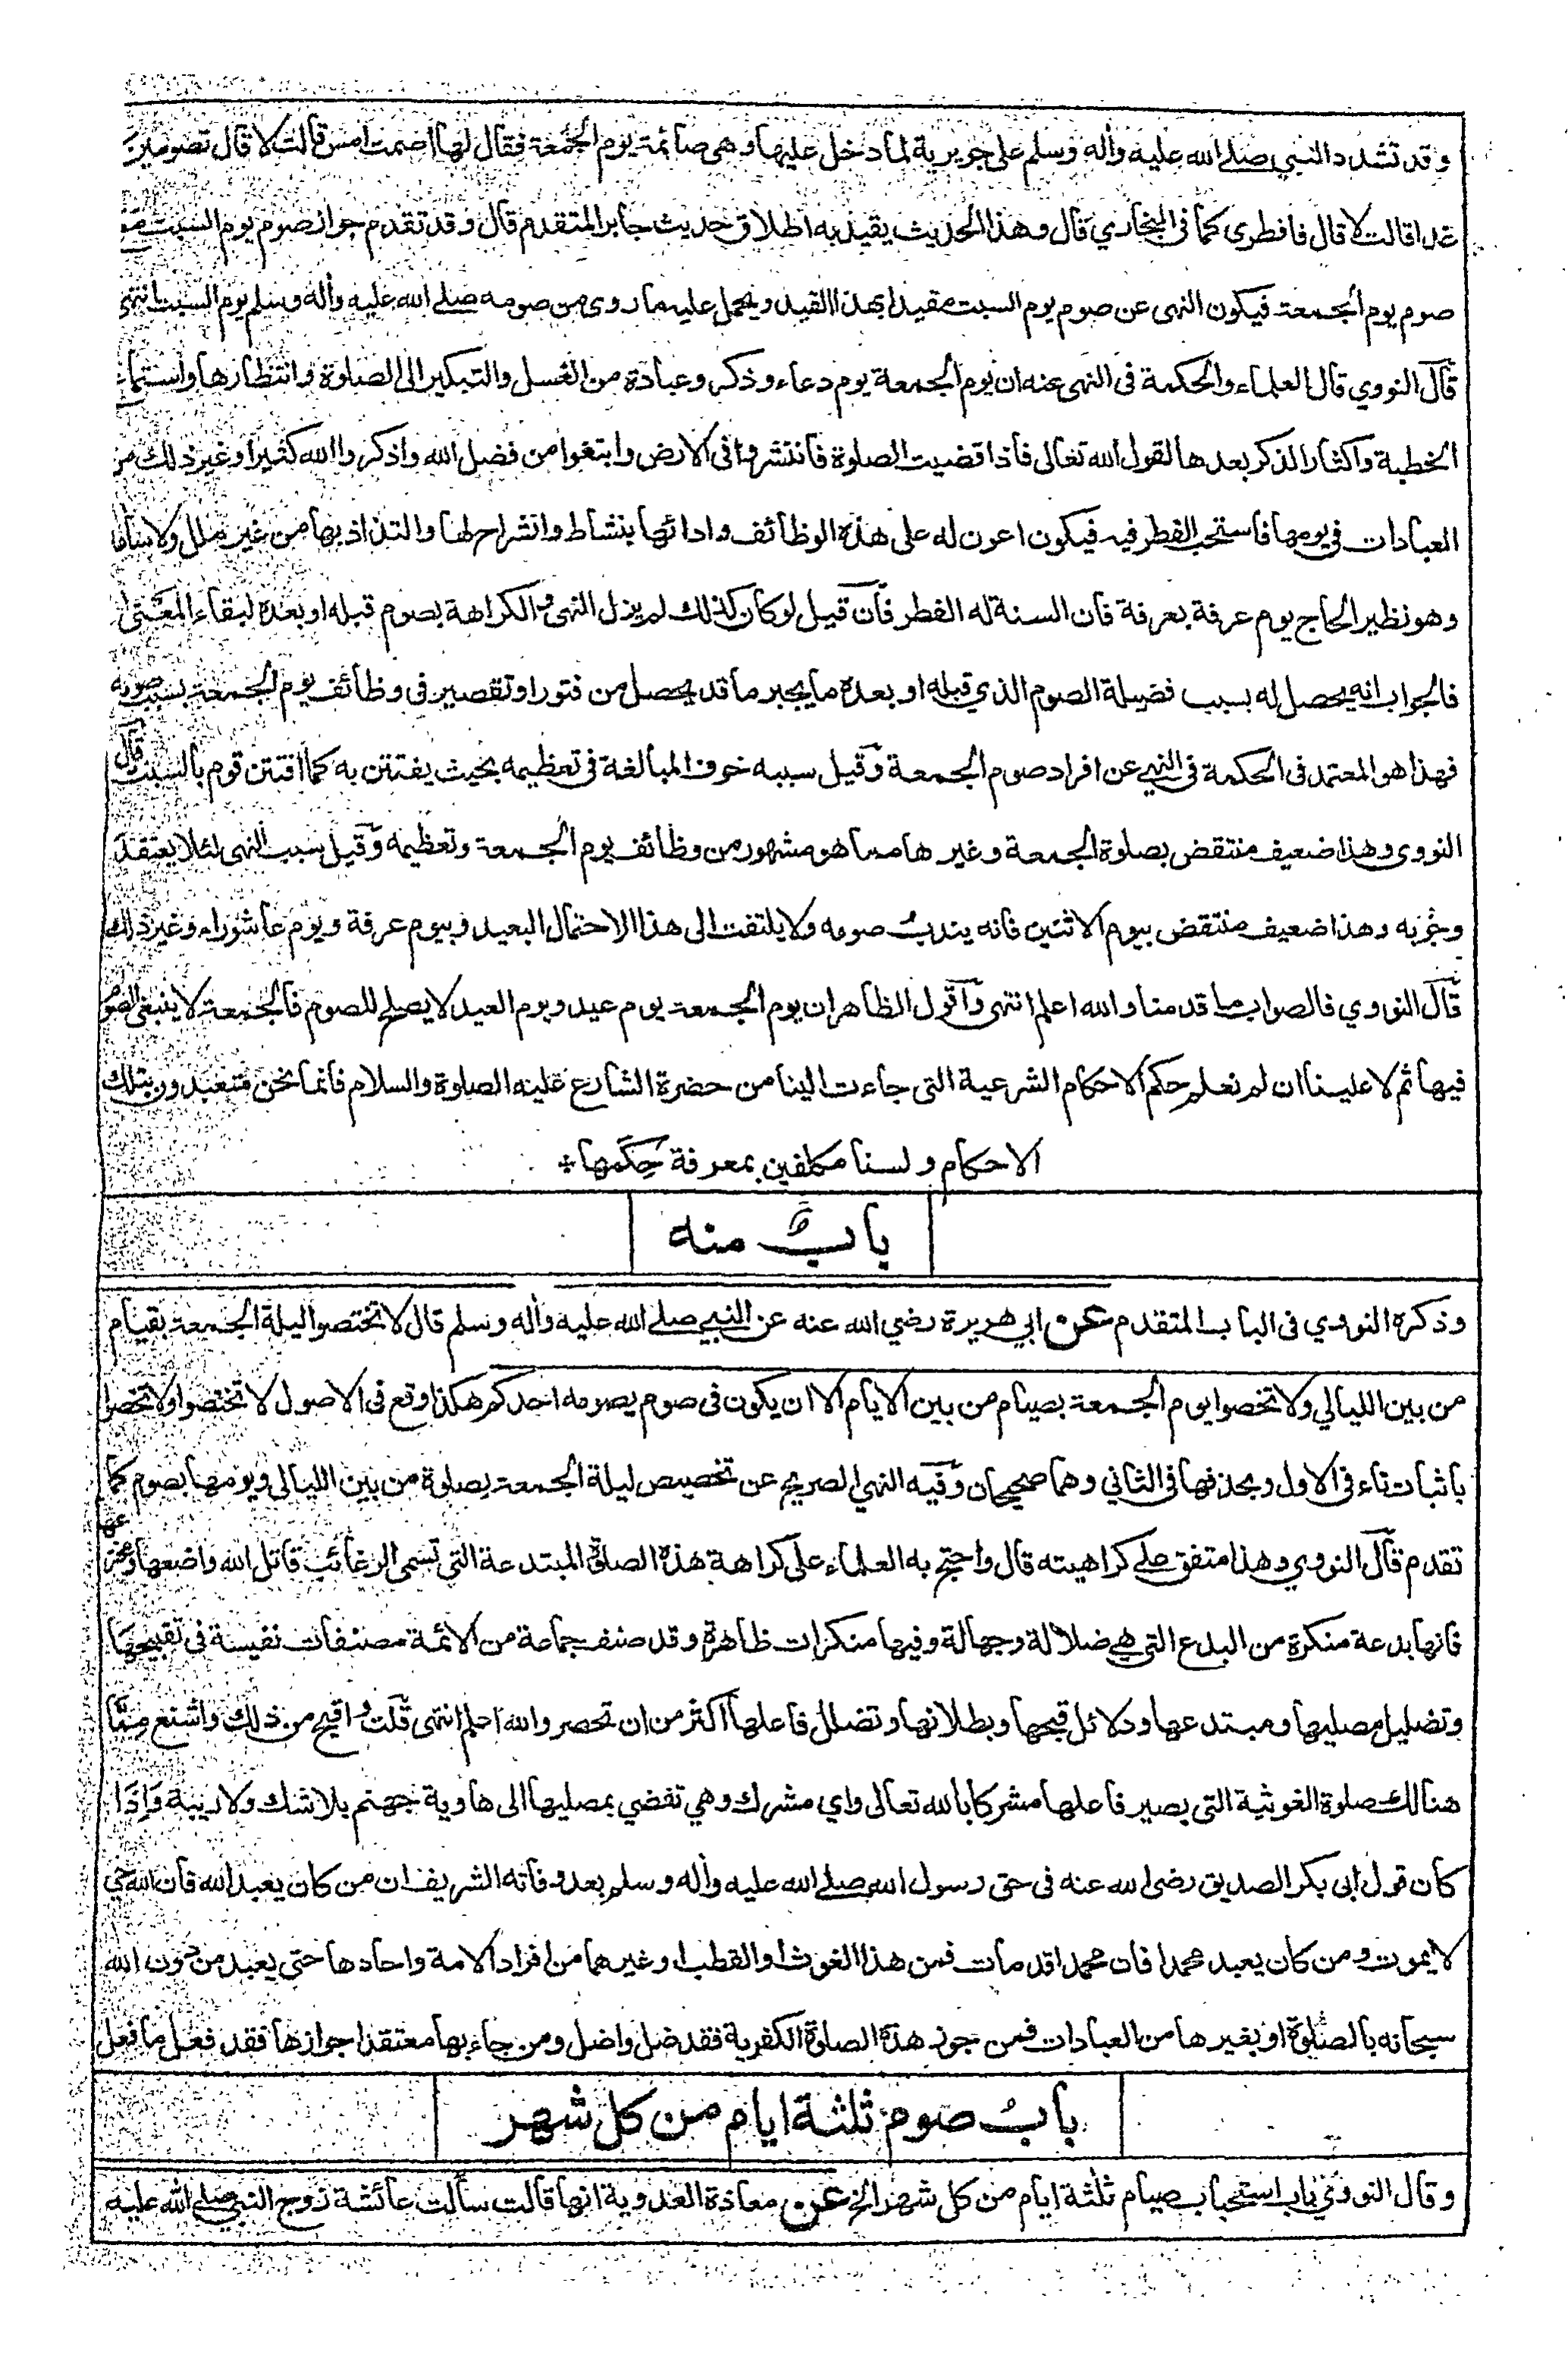 وقد تشدد النبي صلے الله عليه وأله وسلم على جويرية لما دخل عليها وهى صائمة يوم الجمعة فقال لها اصمت امس قالت لا قال تصومين
غدا قالت لا قال فافطرى كما فى البخاري قال وهذا الحديث يقيد به اطلاق حديث جابر المتقدم قال وقد تقدم جواز صوم يوم السبت مع
صوم يوم الجمعة فيكون النهى عن صوم يوم السبت مقيدا بهذا القيد ويحمل عليه ما روى من صومه صلے الله عليه وأله وسلم يوم السبت انتهى
قال النووي قال العلماء والحكمة فى النهى عنه ان يوم الجمعة يوم دعاء وذكر وعبادة من الغسل والتبكير الى الصلوة وانتظارها واستماع
الخطبة واكثار الذكر بعدها لقول الله تعالى فاذا قضيت الصلوة فانتشروا فى الارض وابتغوا من فضل الله واذكروا الله كثيرا وغير ذلك من
العبادات فى يومها فاستحب الفطر فيه فيكون اعون له على هذه الوظائف وادائها بنشاط وانشراح لها والتذاذ بها من غير ملل ولا سآمة
وهو نظير الحاج يوم عرفة بعرفة فان السنة له الفطر فان قيل لو كان كذلك لم يزل النهى والكراهة بصوم قبله او بعده لبقاء المعنى
فالجواب انه يحصل له بسبب فضيلة الصوم الذي قبله او بعده ما يجبر ما قد يحصل من فتور او تقصير فى وظائف يوم الجمعة بسبب صومه
فهذا هو المعتمد فى الحكمة فى النهي عن افراد صوم الجمعة وقيل سببه خوف المبالغة فى تعظيمه بحيث يفتتن به كما افتتن قوم بالسبت قال
النووى وهذا ضعيف منتقض بصلوة الجمعة وغيرها مما هو مشهور من وظائف يوم الجمعة وتعظيمه وقيل سبب النهى لئلا يعتقد
وجوبه وهذا ضعيف منتقض بيوم الاثنين فانه يندب صومه ولا يلتفت الى هذا الاحتمال البعيد وبيوم عرفة ويوم عاشوراء وغير ذلك
قال النووي فالصواب ما قدمنا والله اعلم انتهى واقول الظاهر ان يوم الجمعة يوم عيد ويوم العيد لا يصلح للصوم فالجمعة لا ينبغى الصوم
فيها ثم لا علينا ان لم نعلم حكم الاحكام الشرعية التى جاءت الينا من حضرة الشارع عليه الصلوة والسلام فانما نحن متعبدون بتلك
الاحكام ولسنا مكلفين بمعرفة حكمها *
باب منه
وذكره النووي فى الباب المتقدم عن ابي هريرة رضي الله عنه عن النبي صلے الله عليه وأله وسلم قال لا تختصوا ليلة الجمعة بقيام
من بين الليالي ولا تخصوا يوم الجمعة بصيام من بين الايام الا ان يكون فى صوم يصومه احدكم هكذا وقع فى الاصول لا تختصوا ولا تخصوا
باثبات تاء فى الاول وبحذفها فى الثاني وهما صحيحان وفيه النهي الصريح عن تخصيص ليلة الجمعة بصلوة من بين الليالى ويومها بصوم كما
تقدم قال النووي وهذا متفق علے كراهيته قال واحتج به العلماء على كراهة هذه الصلوة المبتدعة التى تسمى الرغائب قاتل الله واضعها ومخترعها
فانها بدعة منكرة من البدع التى هي ضلالة وجهالة وفيها منكرات ظاهرة وقد صنف جماعة من الائمة مصنفات نفيسة فى تقبيحها
وتضليل مصليها ومبتدعها ودلائل قبحها وبطلانها وتضليل فاعلها اكثر من ان تحصر والله اعلم انتهى قلت واقبح من ذلك واشنع منها
هنالك صلوة الغوثية التى يصير فاعلها مشركا بالله تعالى واي مشرك وهي تفضي بمصليها الى هاوية جهنم بلا شك ولا ريبة وإذا
كان قول ابى بكر الصديق رضى الله عنه فى حق رسول الله صلے الله عليه وأله وسلم بعد وفاته الشريف ان من كان يعبد الله فان الله حي
لا يموت ومن كان يعبد محمدا فان محمدا قد مات فمن هذا الغوث او القطب او غيرهما من افراد الامة واحادها حتى يعبد من دون الله
سبحانه بالصلوة او بغيرها من العبادات فمن جوز هذه الصلوة الكفرية فقد ضل واضل ومن جاء بها معتقدا جوازها فقد فعل ما فعل
باب صوم ثلثة ايام من كل شهر
وقال النووي باب استحباب صيام ثلثة ايام من كل شهر الخ عن معاذة العدوية انها قالت سألت عائشة زوج النبي صلے الله عليه